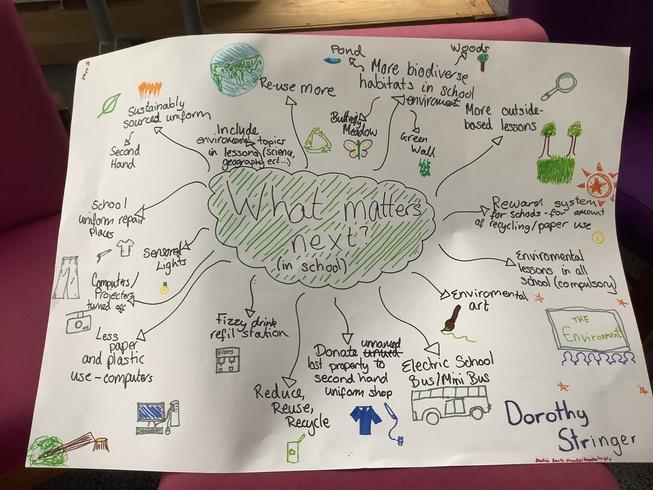 What matters
next?
(in school)
Pond
Woods
More biodiverse
habitats in school
enviroment
Butterfly
Meadow
Green
Wall
Re-use more
Include
enviroment topics
in lessons (science,
geography ect...)
Sustainably
sourced uniform
Second
Hand
School
uniform repair
places
Sensored
Lights
Computers/
Projectors
turned off
Less
paper
and plastic
use - computers
Fizzy drink
refil station
FIZZY
Reduce,
Reuse,
Recycle
Donate unnamed
lost property to
second hand
uniform shop
Electric School
Bus/Mini Bus
Enviromental
art
Enviromental
lessons in all
school (compulsory)
THE
Enviroment
Reward system
for schools - for amount
of recycling/paper use
More outside-
based lessons
Dorothy
Stringer